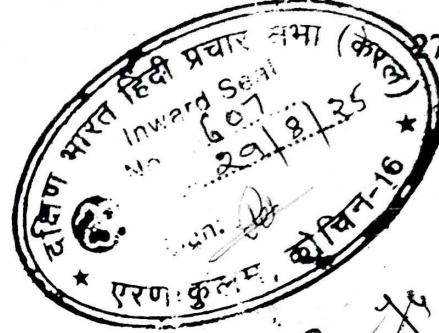 दक्षिण भारत हिंदी प्रचार सभा (केरल)
Inward Seal
No 607
29/8/25
एरणाकुलम, कोचिन-16